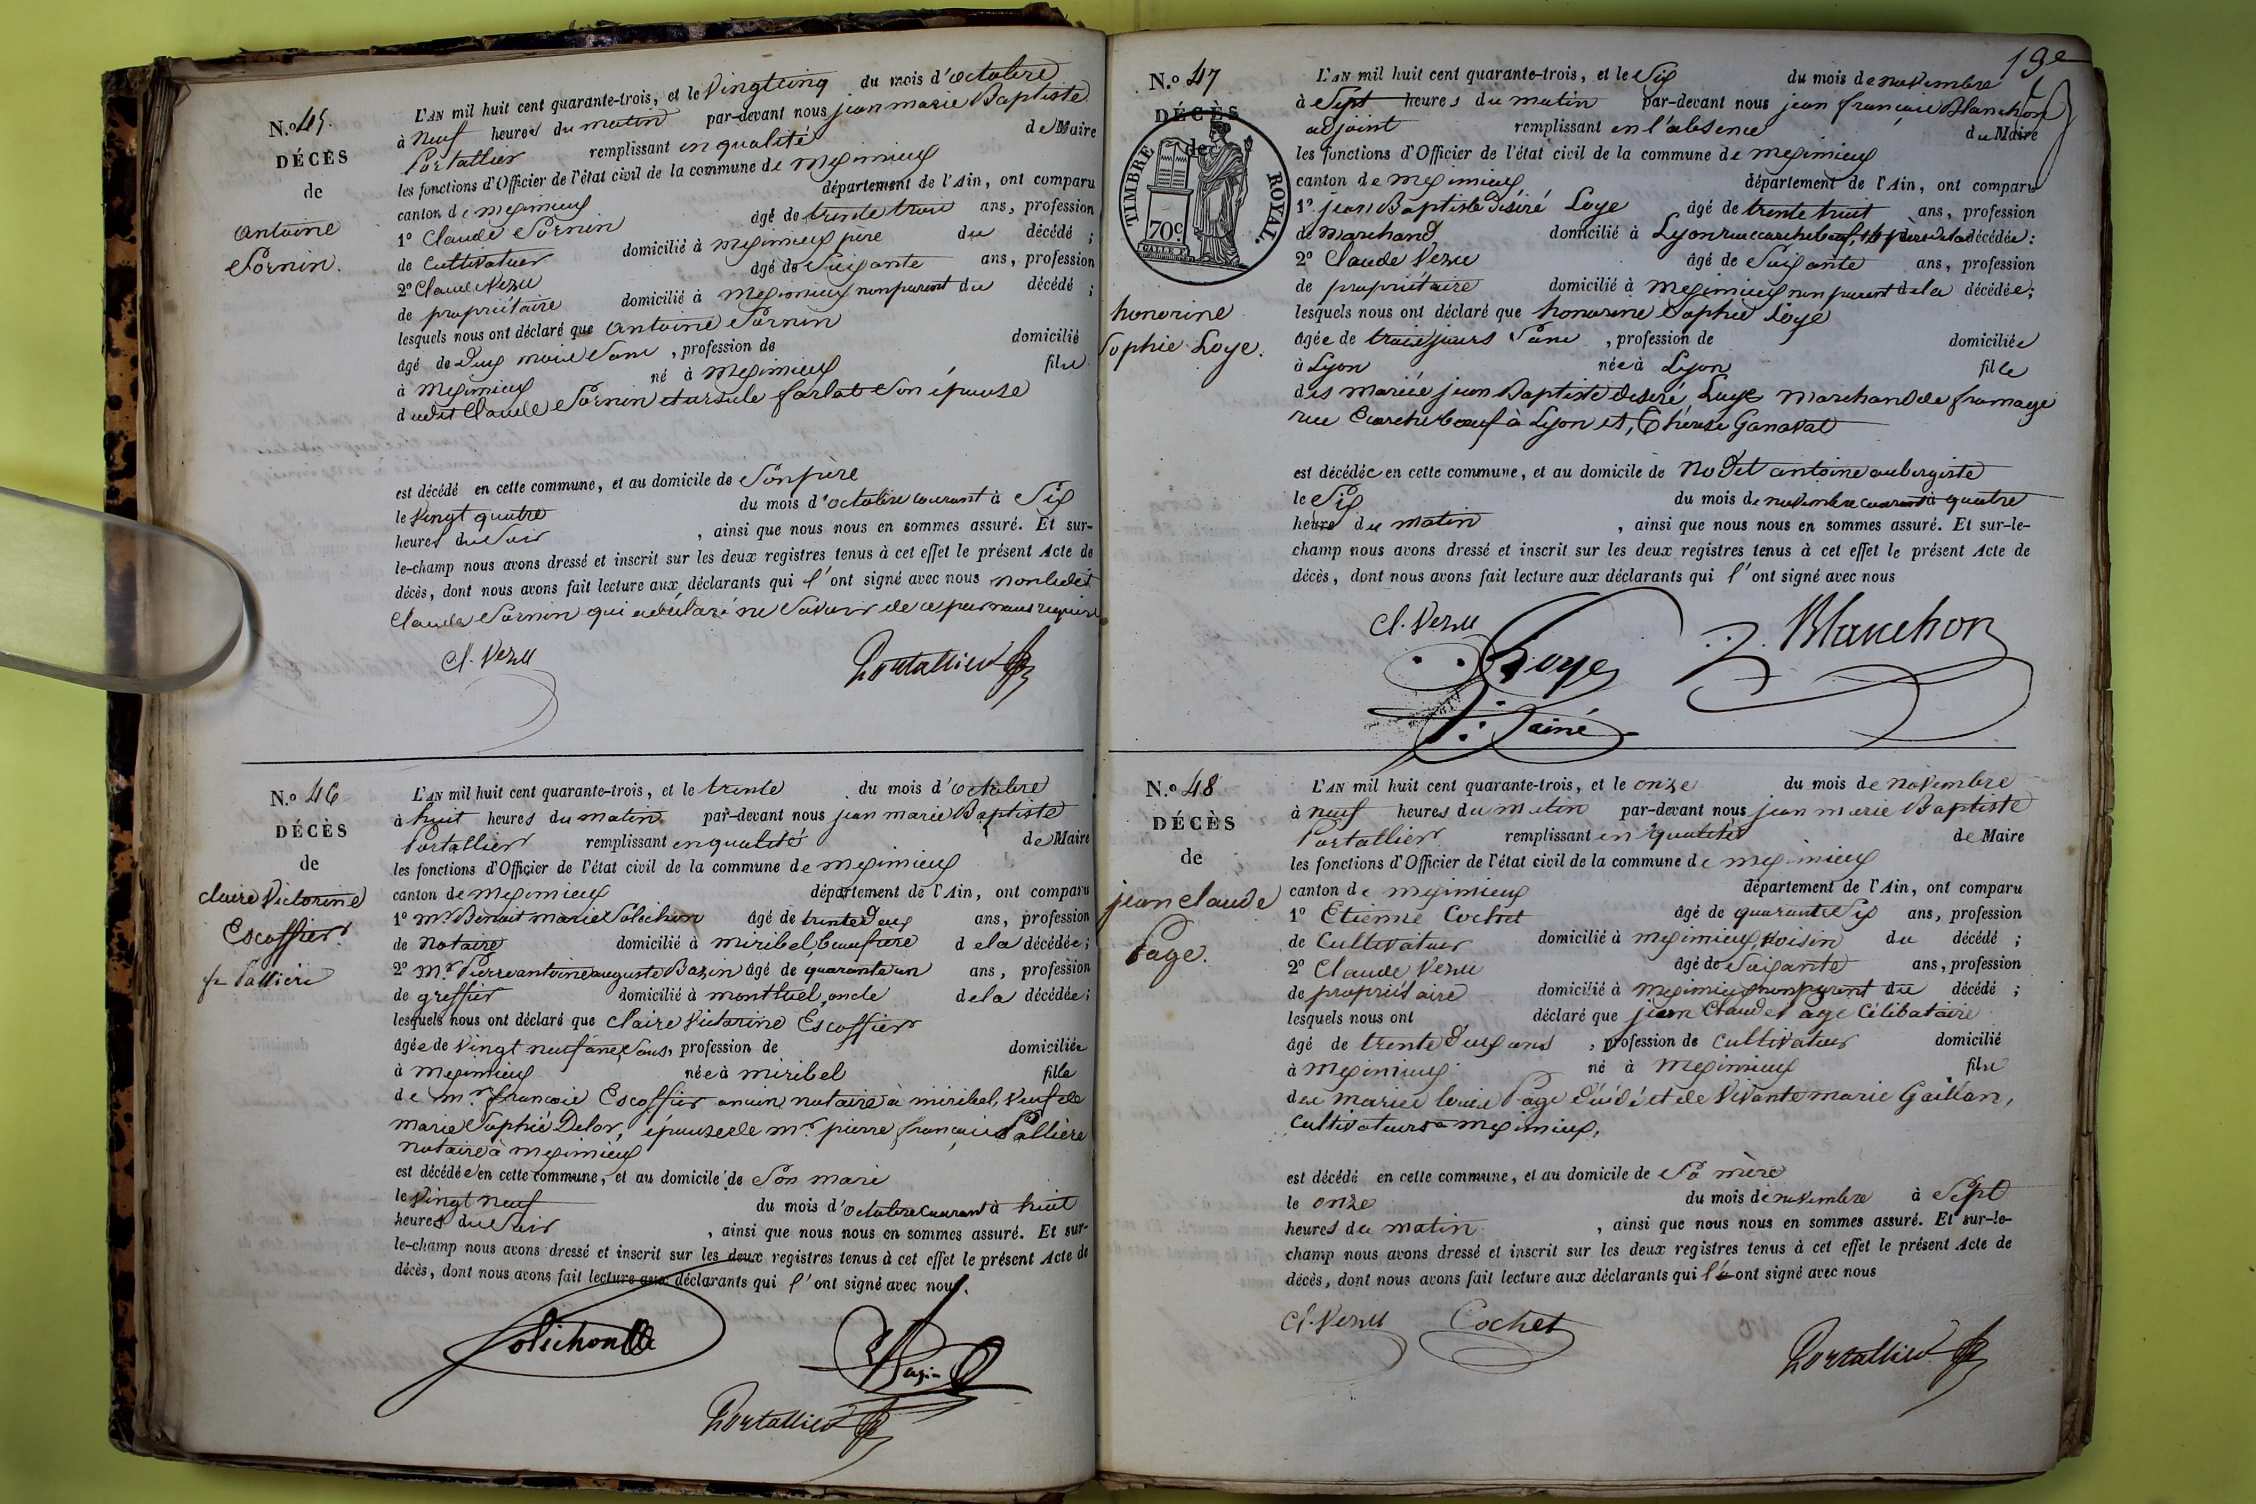 N.º 45.
DÉCÈS
de
antoine
Sornin.
L'AN mil huit cent quarante-trois, et le vingtcinq du mois d'octobre
à neuf heures du matin par-devant nous jean marie Baptiste
Portallier remplissant en qualité de Maire
les fonctions d'Officier de l'état civil de la commune de meximieux
canton de meximieux département de l'Ain, ont comparu
1º Claude Sornin âgé de trente trois ans, profession
de cultivateur domicilié à meximieux père du décédé ;
2º Claude Vezu âgé de Soixante ans, profession
de propriétaire domicilié à meximieux non parent du décédé ;
lesquels nous ont déclaré que antoine Sornin
âgé de Dix mois Sans , profession de domicilié
à meximieux né à meximieux fils
dudit Claude Sornin et ursule farlat Son épouse
est décédé en cette commune, et au domicile de Son père
le vingt quatre du mois d'octobre courant à Six
heures du Soir , ainsi que nous nous en sommes assuré. Et sur-
le-champ nous avons dressé et inscrit sur les deux registres tenus à cet effet le présent Acte de
décès, dont nous avons fait lecture aux déclarants qui l'ont signé avec nous non ledit
Claude Sornin qui a déclaré ne Savoir de ce par nous requis
Cl. Vezu Portallier
N.º 46
DÉCÈS
de
claire Victorine
Escoffier
fe Pallière
L'AN mil huit cent quarante-trois, et le trente du mois d'octobre
à huit heures du matin par-devant nous jean marie Baptiste
Portallier remplissant en qualité de Maire
les fonctions d'Officier de l'état civil de la commune de meximieux
canton de meximieux département de l'Ain, ont comparu
1º mr. Benoit marie Solichon âgé de trente Deux ans, profession
de notaire domicilié à miribel beaufrère de la décédée ;
2º mr. Pierre antoine auguste Bazin âgé de quarante un ans, profession
de greffier domicilié à montluel, oncle de la décédée ;
lesquels nous ont déclaré que claire Victorine Escoffier
âgée de vingt neuf ans, profession de domiciliée
à meximieux née à miribel fille
de mr. françois Escoffier ancien notaire à miribel, veuf de
marie Sophie Delor, épouse de mr. pierre françois Pallière
notaire à meximieux
est décédée en cette commune, et au domicile de Son mari
le vingt neuf du mois d'octobre courant à huit
heures du Soir , ainsi que nous nous en sommes assuré. Et sur-
le-champ nous avons dressé et inscrit sur les deux registres tenus à cet effet le présent Acte de
décès, dont nous avons fait lecture aux déclarants qui l'ont signé avec nous.
Solichon Bazin
Portallier
19e
N.º 47
DÉCÈS
de
TIMBRE ROYAL.
70c.
honorine
Sophie Loye.
L'AN mil huit cent quarante-trois, et le Six du mois de novembre
à Sept heures du matin par-devant nous jean françois Blanchon
adjoint remplissant en l'absence du Maire
les fonctions d'Officier de l'état civil de la commune de meximieux
canton de meximieux département de l'Ain, ont comparu
1º jean Baptiste Désiré Loye âgé de trente huit ans, profession
de marchand domicilié à Lyon rue ecorchebeuf, 14 père de la décédée :
2º Claude Vezu âgé de Soixante ans, profession
de propriétaire domicilié à meximieux non parent de la décédée ;
lesquels nous ont déclaré que honorine Sophie Loye
âgée de trois jours Sans , profession de domiciliée
à Lyon née à Lyon fille
des mariés jean Baptiste Desiré Loye marchand de fromage
rue Ecorchebœuf à Lyon et, Thérèse Ganaval
est décédée en cette commune, et au domicile de Nodet antoine aubergiste
le Six du mois de novembre courant à quatre
heures du matin , ainsi que nous nous en sommes assuré. Et sur-le-
champ nous avons dressé et inscrit sur les deux registres tenus à cet effet le présent Acte de
décès, dont nous avons fait lecture aux déclarants qui l'ont signé avec nous
Cl. Vezu Loye J. Blanchon
ainé
N.º 48
DÉCÈS
de
jean claude
Page.
L'AN mil huit cent quarante-trois, et le onze du mois de novembre
à neuf heures du matin par-devant nous jean marie Baptiste
Portallier remplissant en qualité de Maire
les fonctions d'Officier de l'état civil de la commune de meximieux
canton de meximieux département de l'Ain, ont comparu
1º Etienne Cochet âgé de quarante Six ans, profession
de Cultivateur domicilié à meximieux, voisin du décédé ;
2º Claude Vezu âgé de Soixante ans, profession
de propriétaire domicilié à meximieux non parent du décédé ;
lesquels nous ont déclaré que jean Claude Page Célibataire
âgé de trente Deux ans , profession de cultivateur domicilié
à meximieux né à meximieux fils
des mariés louis Page Décédé et de vivante marie Gaillan,
Cultivateurs à meximieux,
est décédé en cette commune, et au domicile de Sa mère
le onze du mois de novembre à Sept
heures du matin , ainsi que nous nous en sommes assuré. Et sur-le-
champ nous avons dressé et inscrit sur les deux registres tenus à cet effet le présent Acte de
décès, dont nous avons fait lecture aux déclarants qui l'ont signé avec nous
Cl. Vezu Cochet Portallier